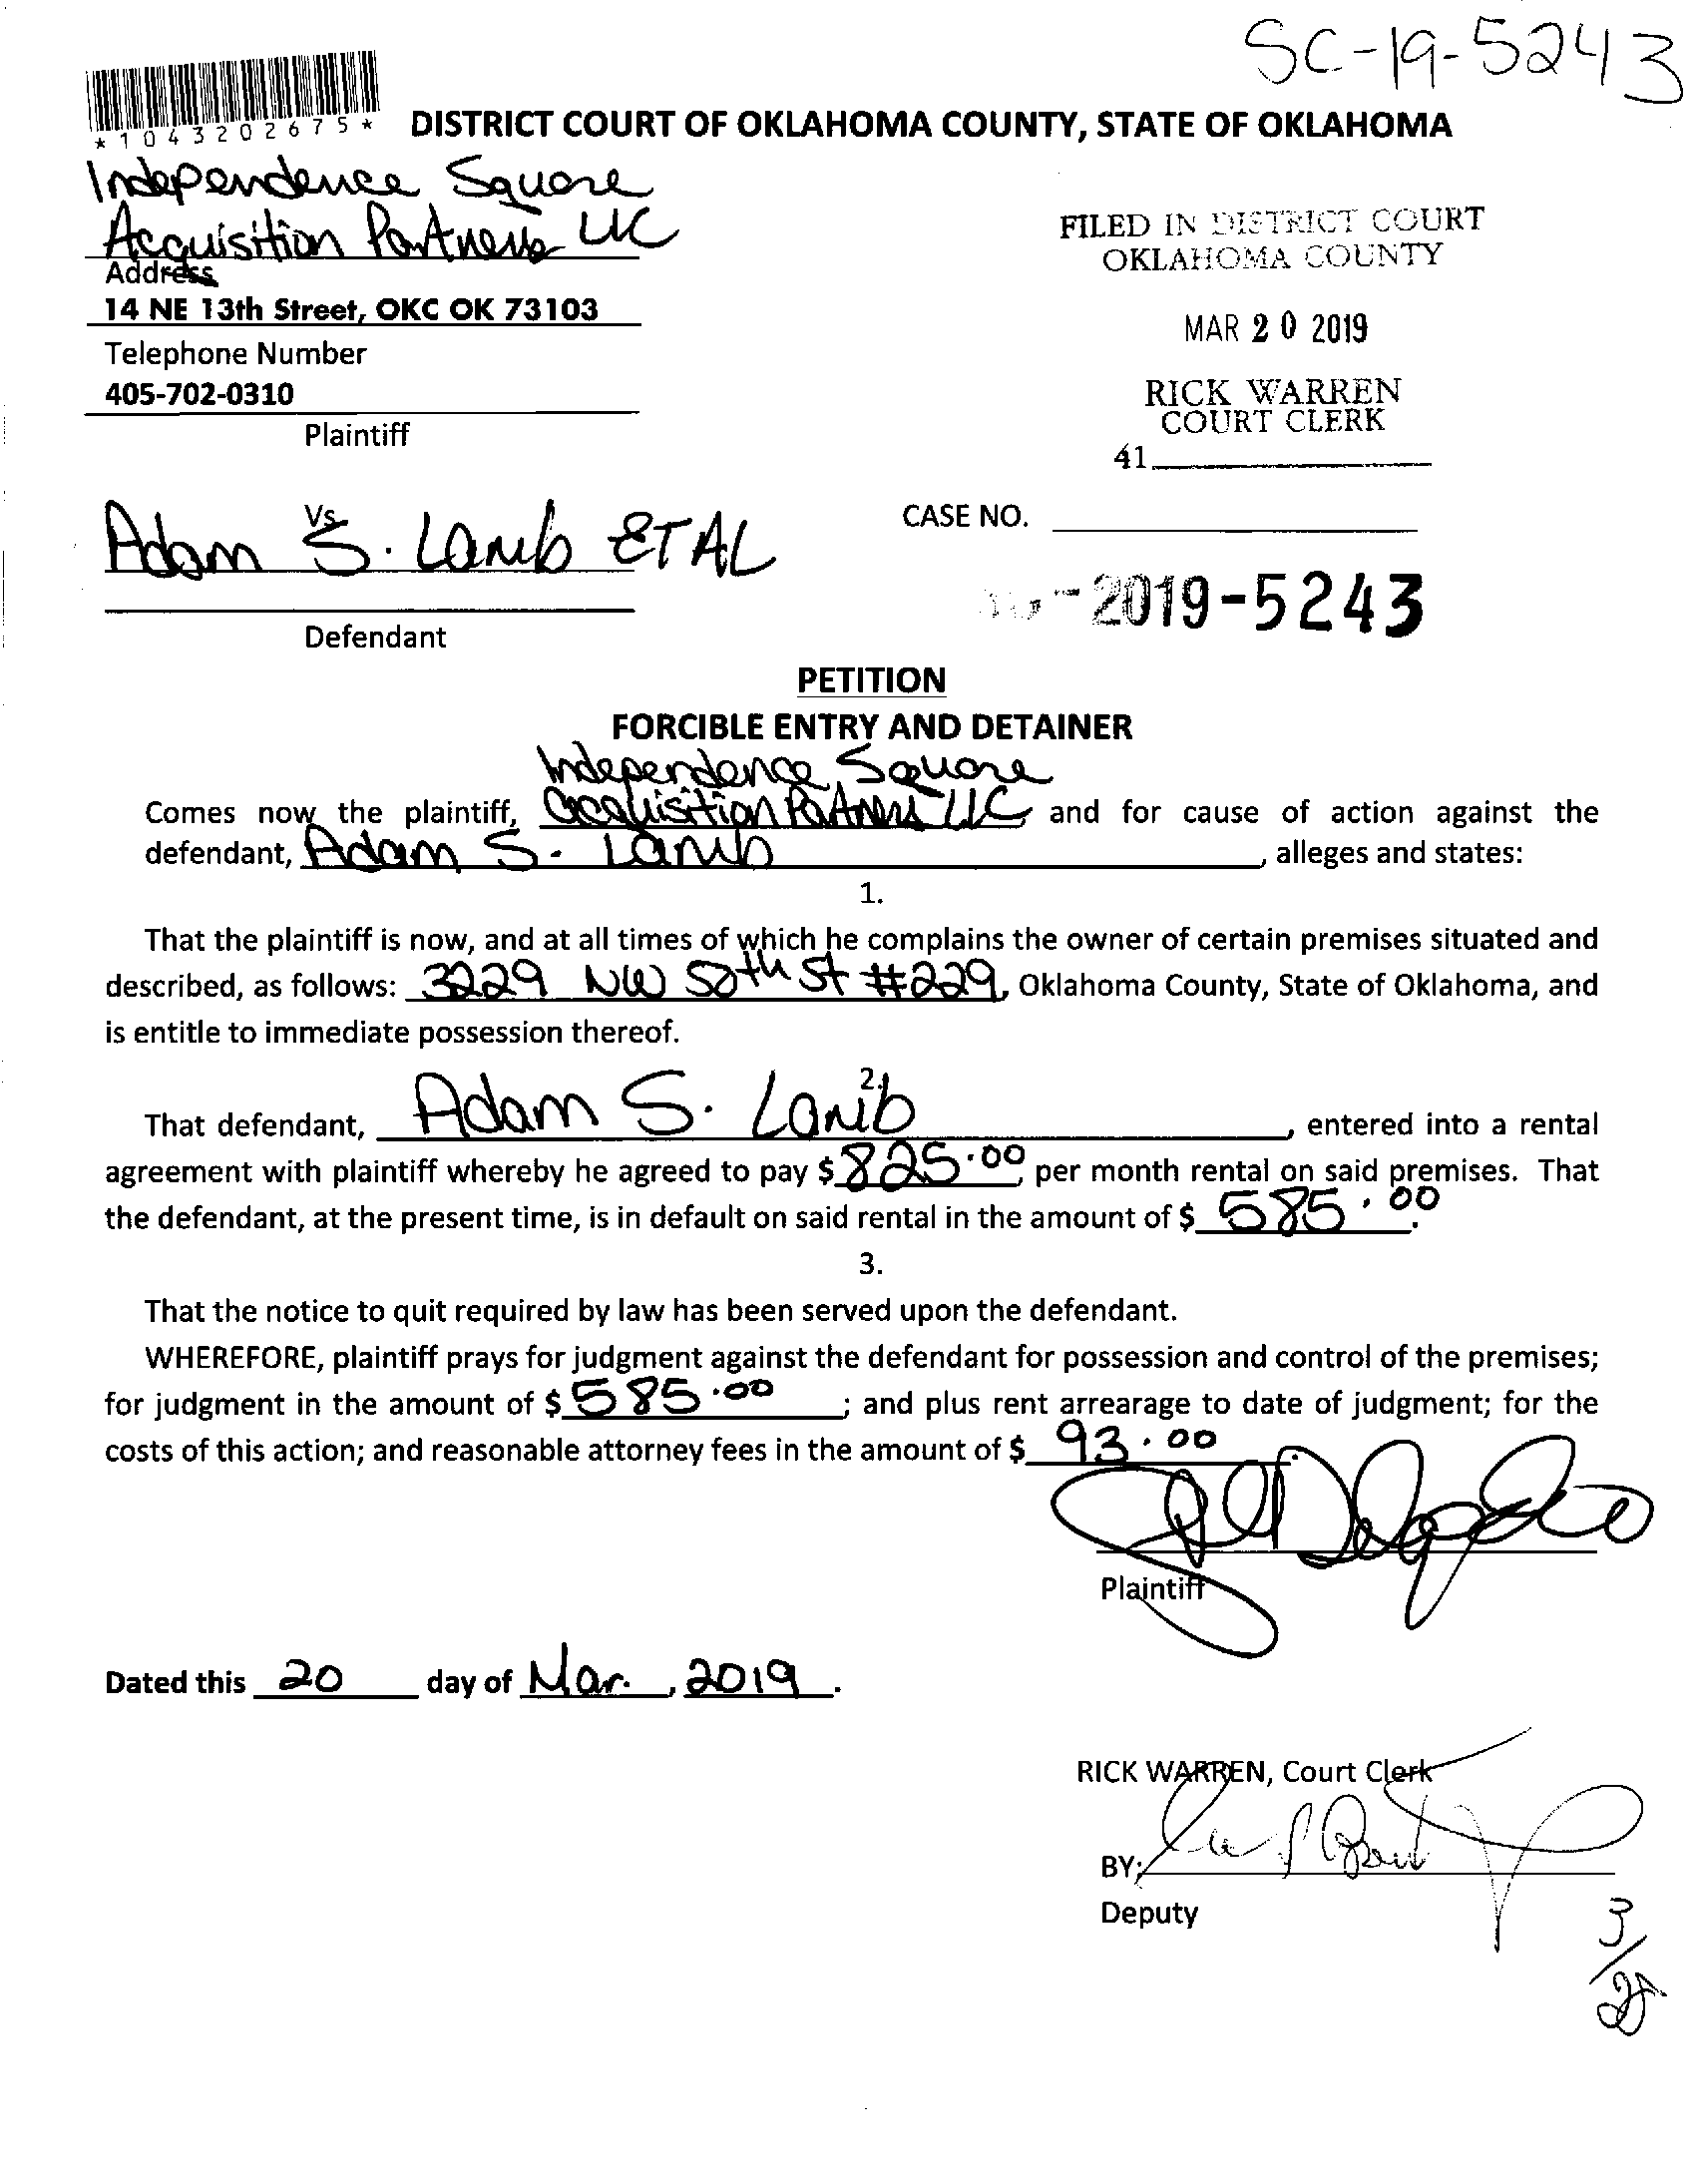 SC-19-5243
*1043202675*
DISTRICT COURT OF OKLAHOMA COUNTY, STATE OF OKLAHOMA
Independence Square
Acquisition Partners LLC
Address
14 NE 13th Street, OKC OK 73103
Telephone Number
405-702-0310
Plaintiff
FILED IN DISTRICT COURT
OKLAHOMA COUNTY
MAR 20 2019
RICK WARREN
COURT CLERK
41
Vs.
Adam S. Lamb ET AL
Defendant
CASE NO.
-2019-5243
PETITION
FORCIBLE ENTRY AND DETAINER
Independence Square
Comes now the plaintiff, Acquisition Partners LLC and for cause of action against the
defendant, Adam S. Lamb, alleges and states:
1.
That the plaintiff is now, and at all times of which he complains the owner of certain premises situated and
described, as follows: 3229 NW 50th St #229, Oklahoma County, State of Oklahoma, and
is entitle to immediate possession thereof.
2.
That defendant, Adam S. Lamb, entered into a rental
agreement with plaintiff whereby he agreed to pay $825.00, per month rental on said premises. That
the defendant, at the present time, is in default on said rental in the amount of $585.00.
3.
That the notice to quit required by law has been served upon the defendant.
WHEREFORE, plaintiff prays for judgment against the defendant for possession and control of the premises;
for judgment in the amount of $585.00; and plus rent arrearage to date of judgment; for the
costs of this action; and reasonable attorney fees in the amount of $93.00.
Plaintiff
Dated this 20 day of Mar., 2019.
RICK WARREN, Court Clerk
BY:
Deputy